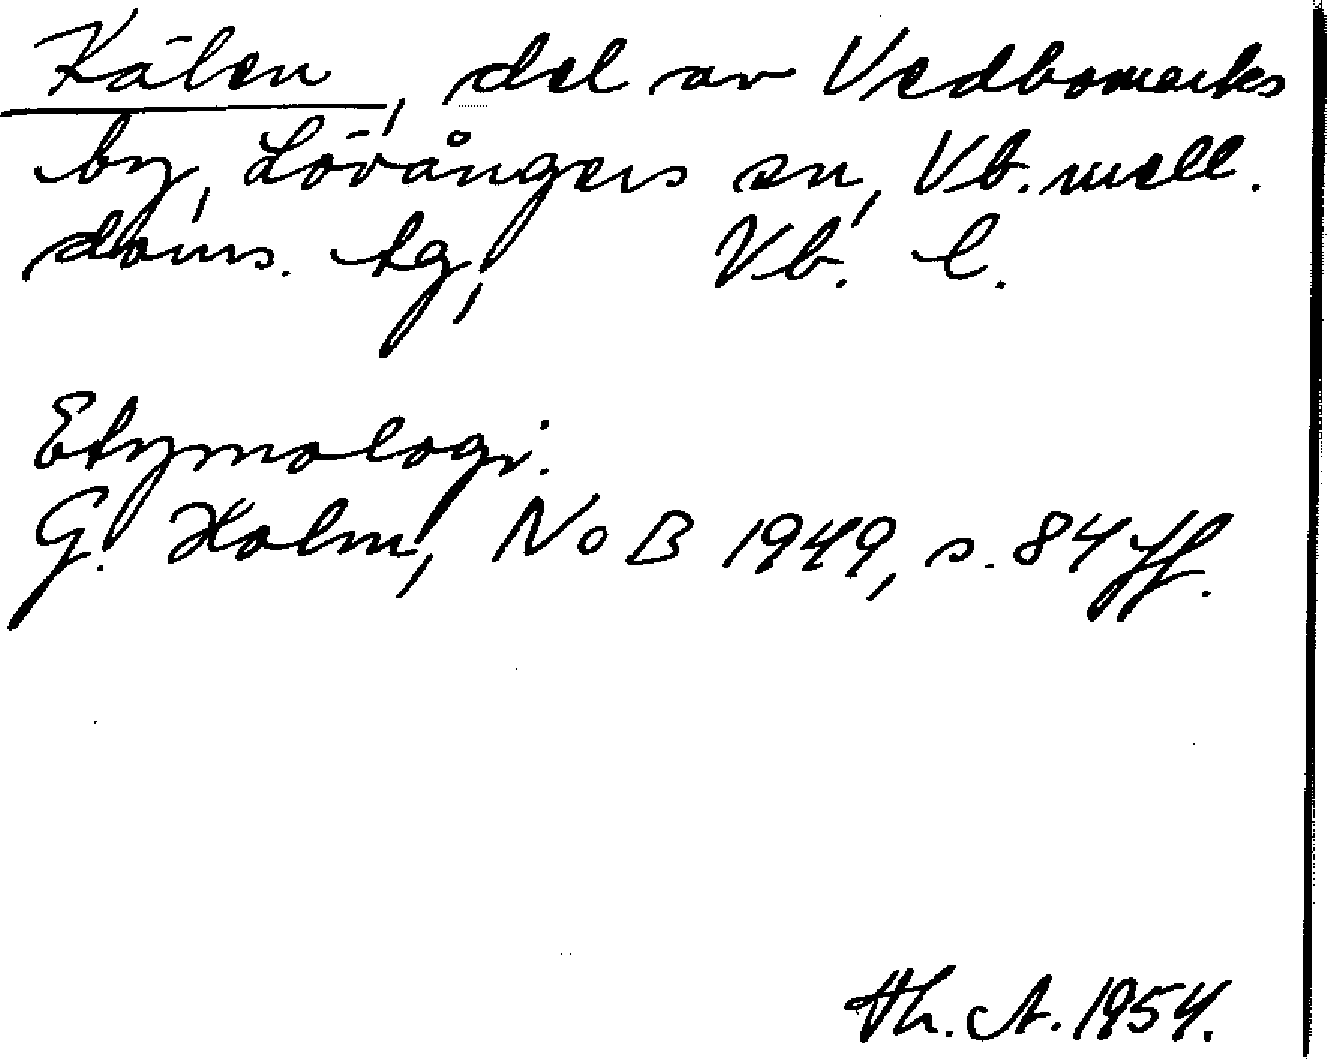 Kälen, del av Vedbomarks
by, Lövångers sn, Vb. mell.
doms. tg, Vb. l.
Etymologi:
G. Holm, NoB 1949, s. 84 ff.
Th. A. 1954.